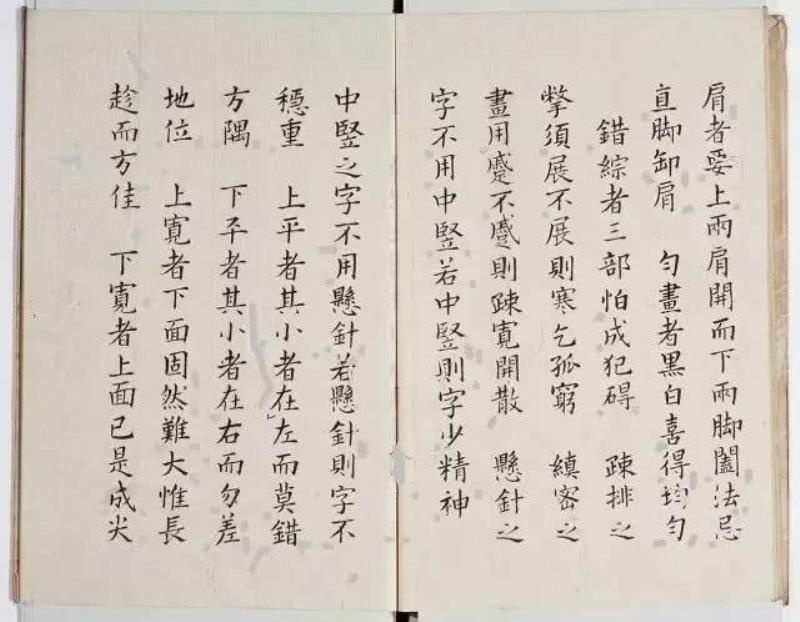 肩者要上兩肩開而下兩脚闔法忌
直脚卸肩　勻畫者黑白喜得均勻
錯綜者三部怕成犯碍　疎排之
撇須展不展則寒乞孤窮　縝密之
畫用蹙不蹙則疎寬開散　懸針之
字不用中竪若中竪則字少精神
中竪之字不用懸針若懸針則字不
穩重　上平者其小者在左而莫錯
方隅　下平者其小者在右而勿差
地位　上寬者下面固然難大惟長
趁而方佳　下寬者上面已是成尖